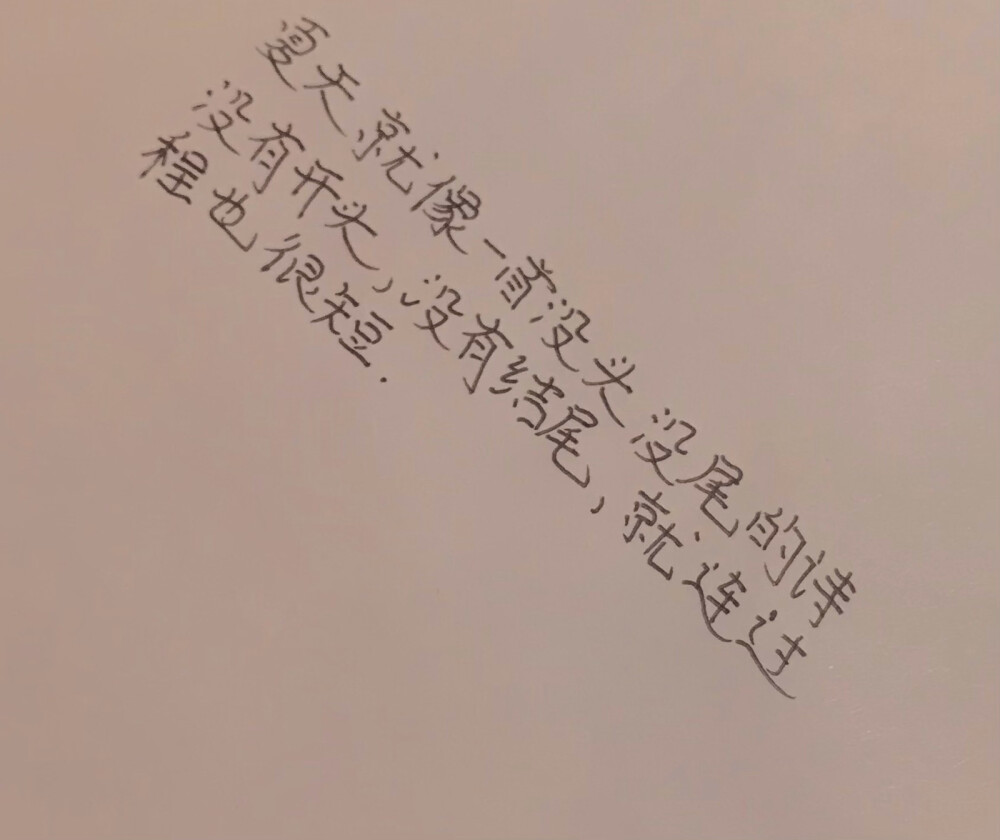 夏天就像一首没头没尾的诗
没有开头,没有结尾,就连过
程也很短.